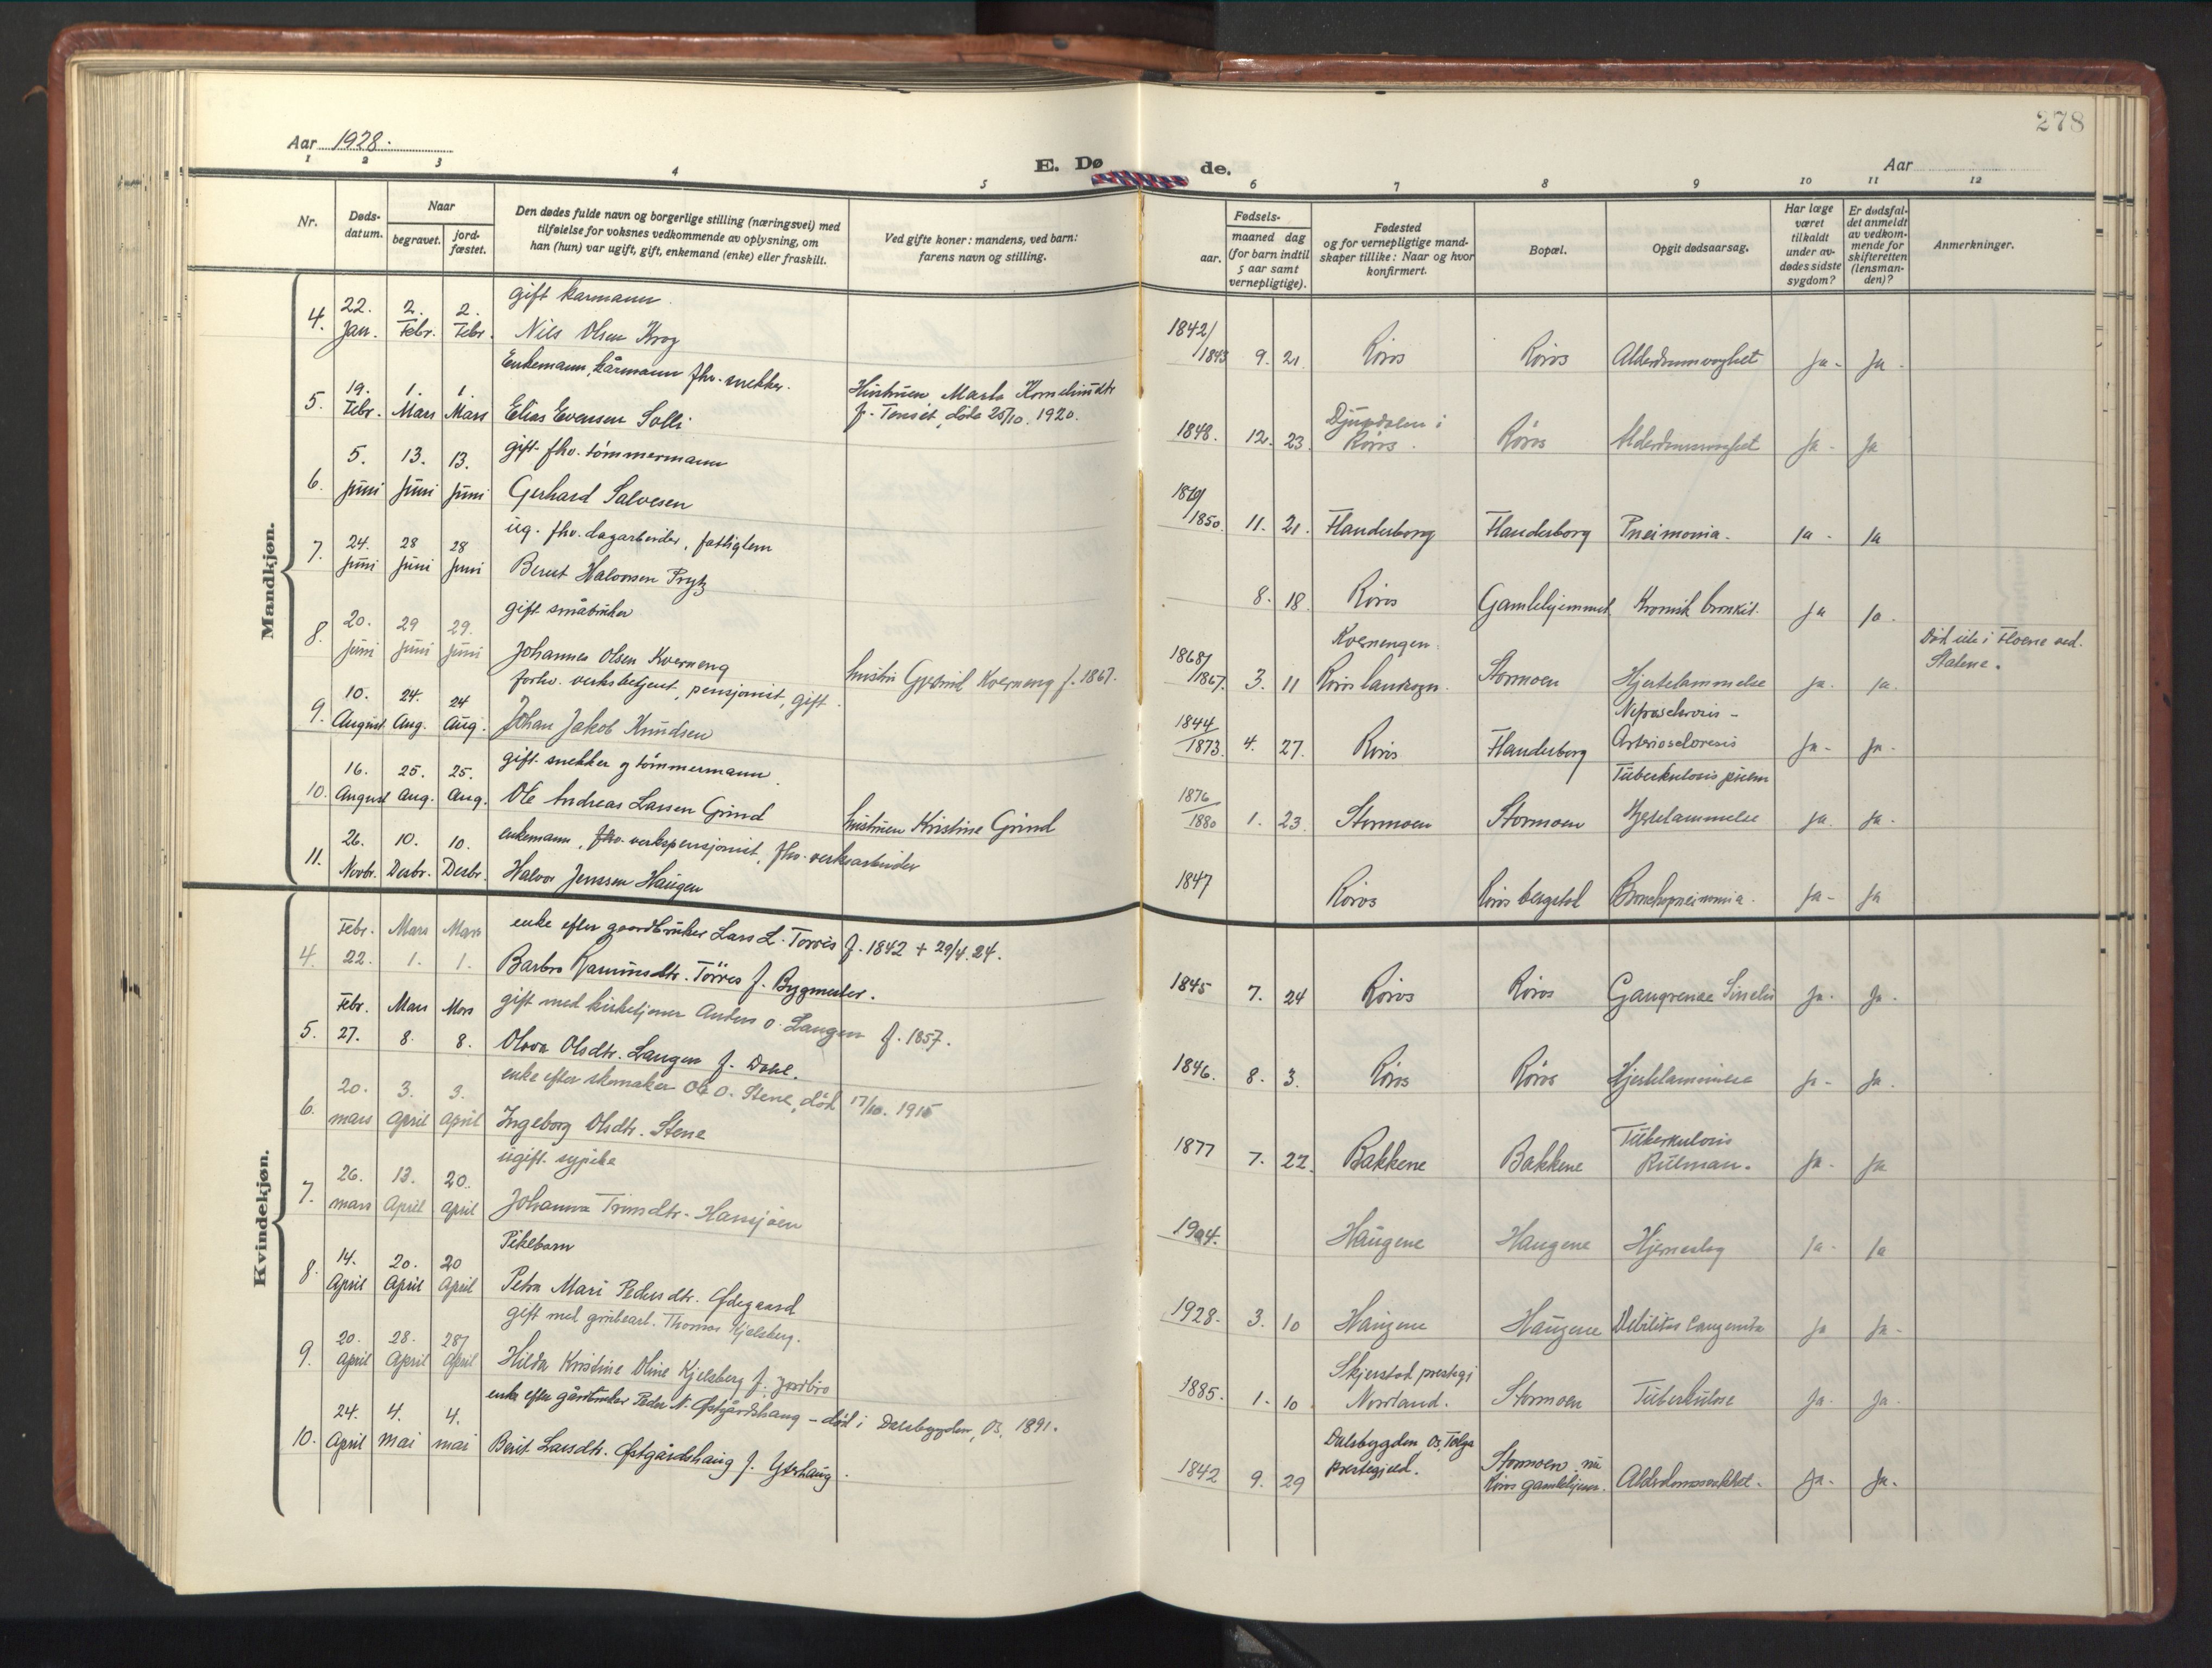 278
Aar 1928.
E. Dø de.
Aar
1 2 3 4 5 6 7 8 9 10 11 12
Nr.
Døds-
datum.
Naar
begravet.
jord-
fæstet.
Den dødes fulde navn og borgerlige stilling (næringsvei) med
tilføielse for voksnes vedkommende av oplysning, om
han (hun) var ugift, gift, enkemand (enke) eller fraskilt.
Ved gifte koner: mandens, ved barn:
farens navn og stilling.
Fødsels-
aar.
maaned dag
(for barn indtil
5 aar samt
vernepligtige).
Fødested
og for vernepligtige mand-
skaper tillike: Naar og hvor
konfirmert.
Bopæl.
Opgit dødsaarsag.
Har læge
været
tilkaldt
under av-
dødes sidste
sygdom?
Er dødsfal-
det anmeldt
av vedkom-
mende for
skifteretten
(lensman-
den)?
Anmerkninger.
Mandkjøn.
gift karmann
4. 22. Jan. 2. Febr. 2. Febr. Nils Olsen Krog
1842/1843 9. 21. Röros Röros Alderdomssvaghet Ja - Ja -
Enkemann, kårmann fhv. snekker.
5. 19. Febr. 1. Mars 1. Mars Elias Evensen Solli
Hustruen Marta
f. Tamset, døde 25/10. 1920.
1848. 12. 23. Djupdalen i Röros. Röros Alderdomssvaghet Ja - Ja
gift fhv. tømmermann
6. 5. juni 13. juni 13. juni Gerhard Salvesen
1850. 11. 21. Flanderborg Flanderborg Pneimonia - Ja - Ja
ug. fhv. dagarbeider, fattiglem
7. 24. juni 28 juni 28 juni Berent Halvorsen Prytz
8. 18. Röros Gamlehjemmet Kronisk bronkit. Ja Ja.
gift småbruker
8. 20. juni 29 juni 29. juni Johannes Olsen Kverneng
hustru Kverneng f. 1867.
1868/1867. 3. 11 Kvernengen Röros landsogn. Stormoen Hjertelammelse Ja. Ja.
Död ute i Floene ved
Stalene.
forhv. verksbetjent, pensjonist, gift.
9. 10. August 24. Aug. 24 Aug. Johan Jakob Knudsen
1844/1873. 4. 27. Röros Flanderborg Nefrosclerosis - Arteriosclerosis Ja - Ja -
gift snekker og tömmermann
10. 16. August 25. Aug. 25. Aug. Ole Andreas Larsen Grind
hustruen Kristine Grind
1876/1880 1. 23. Stormoen Stormoen Tüberkulosis pulm Hjertelammelse Ja. Ja -
enkemann, fhv. verkspensjonist, fhv. verksarbeider
11. 26. Novbr. 10. Desbr. 10. Desbr. Halvor Jenssen Haugen
1847 Röros Röros bergstad Bronchopneimonia. Ja - Ja
Kvindekjøn.
enke efter gaardbruker Lars L. Torres f. 1842 + 29/4. 24.
4. Febr. 22. Mars 1. Mars 1. Barbro Rasmusdtr. Törres f. Bygmester.
1845 7. 24 Röros Röros Gangrenae Senilis Ja - Ja -
gift med kirketjener Anders O. Langen f. 1857.
5. Febr. 27. Mars 8. Mars 8. Olava Olsdtr. Langen f. Dahl.
1846. 8. 3. Röros Röros Hjertelammelse Ja - Ja.
enke efter skomaker Ole O. Stene, död 17/10. 1915
6. 20. mars 3. april 3. april Ingeborg Olsdtr. Stene
1877 7. 22. Bakkene Bakkene Tüberkulosis Pulmon. Ja - Ja
ugift sypike
7. 26. mars 13. April 20. april Johanna Trondtr. Hamjöen
1904. Haugene Haugene Hjerneslag Ja - Ja
Pikebarn
8. 14. April 20. April 20 April Petra Mari Pedersdtr. Ødegaard
1928. 3. 10 Haugene Haugene Debilitas Congenita Ja Ja -
gift med grubearb. Thomas Kjelsberg.
9. 20. april 28. April 28. April Hilda Kristine Oline Kjelsberg f.
1885. 1. 10 Skjerstad prestegj Nordland. Stormoen Tüberkulose Ja - Ja.
enke efter gårdbruker Peder N. Østgårdshaug - död i Dalsbygden, Os, 1891.
10. 24. April 4. Mai 4. mai Berit Larsdtr. Østgårdshaug f. Ytterhaug.
1842 9. 29 Dalsbygden, Os, Tolga prestegjeld. Stormoen, nu Röros gamlehjem. Alderdomssvakhet. Ja - Ja -